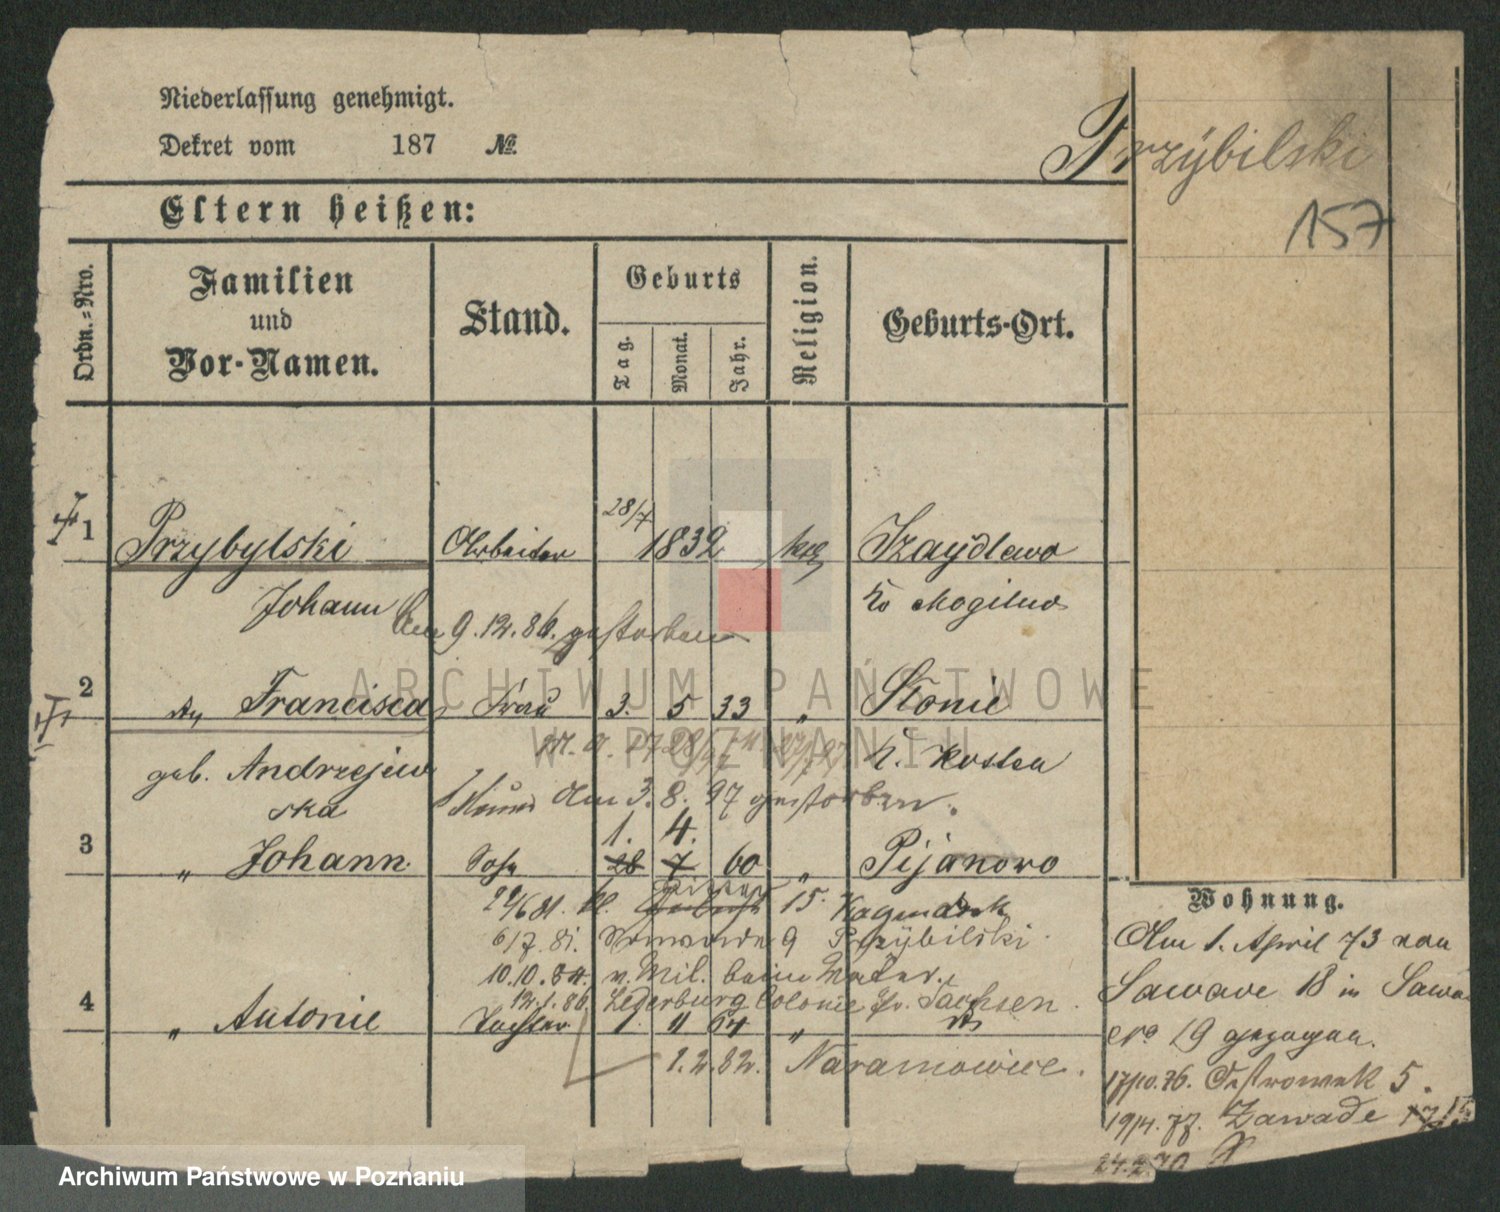 Niederlassung genehmigt.
Dekret vom 187 №
Przÿbilski
157
Eltern heißen:
Ordn.-Nro.
Familien und Vor-Namen.
Stand.
Geburts
Tag.
Monat.
Jahr.
Religion.
Geburts-Ort.
1 Przybylski Arbeiter 28/7 1832 kth Szaÿdlewo
Johann Ko Mogilno
Am 9.12.86. gestorben
2 Francisca Frau 3. 5 33 " Slonie
geb. Andrzejew K. Kosten
ska Am 3. 8. 97 gestorben.
1. 4.
3 " Johann. Sohn 28 7 60 " Pijanowo
15.
6/7. 81. 9 Przÿbilski.
10.10.84. v. Mil. beim Vater.
12.1.86. Lederburg Colonie Pr. Sachsen.
4 " Antonie Tochter 1. 11 64 "
1.2.82. Naramowice.
Wohnung.
Am 1. April 73 von
Sawade 18 in Sawade
No 19 gezogen.
17/10.76. Ostrowek 5.
19/4.77. Zawade 17
Archiwum Państwowe w Poznaniu
ARCHIWUM PAŃSTWOWE
W POZNANIU